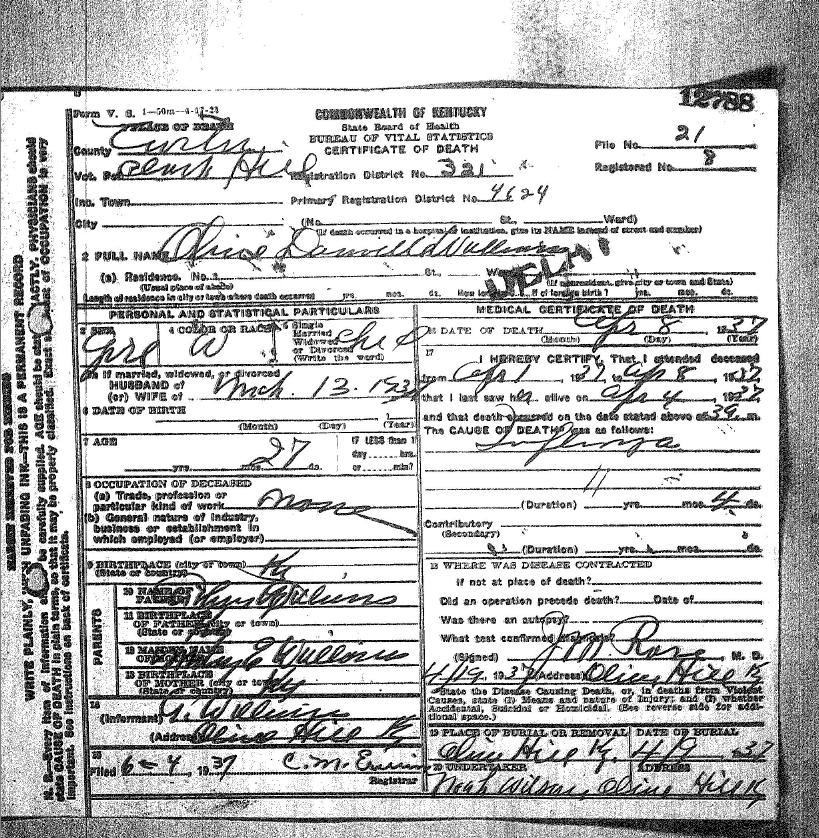 12788
Form V. S. 1-50m-
COMMONWEALTH OF KENTUCKY
State Board of Health
BUREAU OF VITAL STATISTICS
CERTIFICATE OF DEATH
PLACE OF DEATH
County
File No. 21
Vot. Hill Registration District No. 321 Registered No. 8
Inc. Town Primary Registration District No. 4624
City (No. St., Ward)
(If death occurred in a hospital or institution, give its NAME instead of street and number)
2 FULL NAME
(a) Residence. No. St.
(Usual place of abode) (If nonresident, give city or town and State)
Length of residence in city or town where death occurred yrs. mos. ds. How long in U. S. if of foreign birth? yrs. mos. ds.
PERSONAL AND STATISTICAL PARTICULARS
3 SEX 4 COLOR OR RACE W 5 Single Married Widowed or Divorced (Write the word)
5a If married, widowed, or divorced
HUSBAND of
(or) WIFE of Mch. 13. 193
6 DATE OF BIRTH
(Month) (Day) (Year)
7 AGE yrs. mos. 27 ds. If LESS than 1 day hrs. or min?
8 OCCUPATION OF DECEASED
(a) Trade, profession or particular kind of work none
(b) General nature of industry, business or establishment in which employed (or employer)
9 BIRTHPLACE (city or town) Ky
(State or country)
PARENTS
10 NAME OF FATHER Williams
11 BIRTHPLACE OF FATHER (city or town)
(State or country)
12 MAIDEN NAME OF MOTHER E Williams
13 BIRTHPLACE OF MOTHER (city or town) Ky
(State or country)
14
(Informant) Williams
(Address) Olive Hill Ky
15
Filed 6-4, 1937 C. M.
Registrar
MEDICAL CERTIFICATE OF DEATH
16 DATE OF DEATH Apr 8 1937
(Month) (Day) (Year)
17 I HEREBY CERTIFY, That I attended deceased
from Apr 1, 1937, to Apr 8, 1937
that I last saw her alive on Apr 4, 1937
and that death occurred on the date stated above at m.
The CAUSE OF DEATH* was as follows:
Influenza
11
(Duration) yrs. mos. 4 ds.
Contributory
(Secondary)
(Duration) yrs. mos. ds.
18 WHERE WAS DISEASE CONTRACTED
if not at place of death?
Did an operation precede death? Date of
Was there an autopsy?
What test confirmed diagnosis?
(Signed) Rose, M. D.
4/19 1937 (Address) Olive Hill Ky
*State the Disease Causing Death, or, in deaths from Violent
Causes, state (1) Means and nature of Injury; and (2) whether
Accidental, Suicidal or Homicidal. (See reverse side for addi-
tional space.)
19 PLACE OF BURIAL OR REMOVAL DATE OF BURIAL
Olive Hill Ky. 4/9 1937
20 UNDERTAKER ADDRESS
Noah Wilson, Olive Hill Ky
MARGIN RESERVED FOR BINDING
WRITE PLAINLY, WITH UNFADING INK—THIS IS A PERMANENT RECORD
N. B.—Every item of information should be carefully supplied. AGE should be stated EXACTLY. PHYSICIANS should
state CAUSE OF DEATH in plain terms, so that it may be properly classified. Exact statement of OCCUPATION is very
important. See instructions on back of certificate.